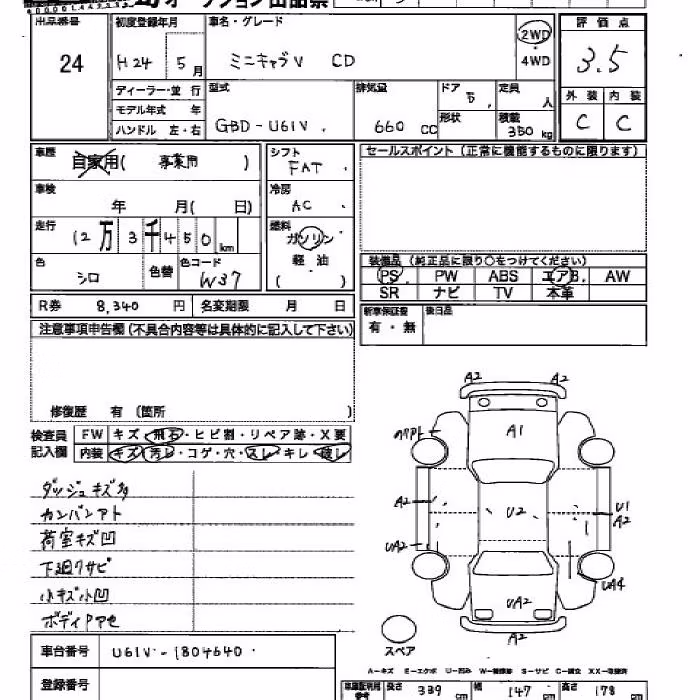 オークション出品票
出品番号
24
初度登録年月
H24 5月
車名・グレード
ミニキャブV CD
2WD
4WD
評価点
3.5
外装 内装
C C
ディーラー・並 行
モデル年式 年
ハンドル 左・右
型式
GBD-U61V
排気量
660 CC
ドア
5
形状
定員
人
積載
350 kg
車歴
自家用( 事業用 )
車検
年 月( 日)
走行
12万3千450km
色
シロ
色替
色コード
W37
シフト
FAT
冷房
AC
燃料
ガソリン
軽 油
( )
セールスポイント(正常に機能するものに限ります)
装備品(純正品に限り○をつけてください)
PS PW ABS エアB. AW
SR ナビ TV 本革
R券 8,340 円 名変期限 月 日
新車保証書
有・無
後日品
注意事項申告欄(不具合内容等は具体的に記入して下さい)
修復歴 有 (箇所 )
検査員
記入欄
FW キズ・飛石・ヒビ割・リペア跡・X要
内装 キズ・汚レ・コゲ・穴・スレ・キレ・破レ
ダッシュキズ多
カンバンアト
荷室キズ凹
下廻サビ
小キズ小凹
ボディPアセ
A2 A2
A1
A2
U2
U1
A2
UA2
UA4
UA2
A2
スペア
A-キズ E-エクボ U-凹み W-補修跡 S-サビ C-腐食 XX-交換済
車台番号 U61V-1804640
登録番号
長さ 339 cm 幅 147 cm 高さ 178 cm